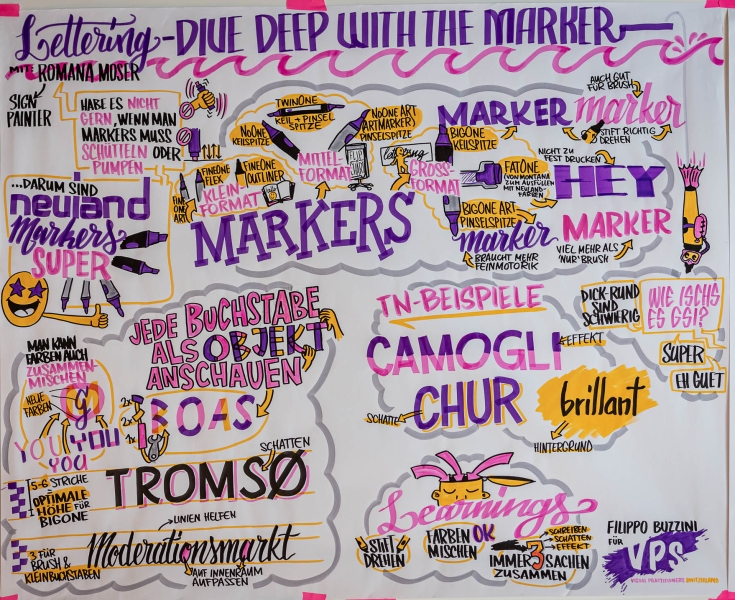 Lettering-DIVE DEEP WITH THE MARKER
MIT ROMANA MOSER
SIGN
PAINTER
HABE ES NICHT
GERN, WENN MAN
MARKERS MUSS
SCHÜTTELN ODER
PUMPEN
...DARUM SIND
neuland
Markers
SUPER
TWINONE
KEIL + PINSEL
SPITZE
NOONE
KEILSPITZE
NOONE ART
(ARTMARKER)
PINSELSPITZE
FINEONE
FLEX
FINEONE
OUTLINER
FINE
ONE
ART
KLEIN-
FORMAT
MITTEL-
FORMAT
lettering
GROSS-
FORMAT
MARKERS
BIGONE
KEILSPITZE
MARKER
AUCH GUT
FÜR BRUSH
marker
STIFT RICHTIG
DREHEN
NICHT ZU
FEST DRUCKEN
FATONE
(VON MONTANA
ZUM AUSFÜLLEN
MIT NEULAND-
FARBEN
HEY
BIGONE ART
PINSELSPITZE
marker
BRAUCHT MEHR
FEINMOTORIK
MARKER
VIEL MEHR ALS
'NUR' BRUSH
JEDE BUCHSTABE
ALS OBJEKT
ANSCHAUEN
MAN KANN
FARBEN AUCH
ZUSAMMEN-
MISCHEN
NEUE
FARBEN
g
YOU YOU
YOU
2x
2x
1x
BOAS
SCHATTEN
5-6 STRICHE
OPTIMALE
HÖHE FÜR
BIGONE
TROMSØ
LINIEN HELFEN
3 FÜR
BRUSH &
KLEINBUCHSTABEN
Moderationsmarkt
AUF INNENRAUM
AUFPASSEN
TN-BEISPIELE
CAMOGLI
EFFEKT
CHUR
SCHATTE
brillant
HINTERGRUND
DICK-RUND
SIND
SCHWIERIG
WIE ISCHS
ES GSI?
SUPER
EH GUET
Learnings
STIFT
DREHEN
FARBEN OK
MISCHEN
IMMER 3 SACHEN
ZUSAMMEN
SCHREIBEN
SCHATTEN
EFFEKT
FILIPPO BUZZINI
FÜR
VPS
VISUAL PRACTITIONERS SWITZERLAND